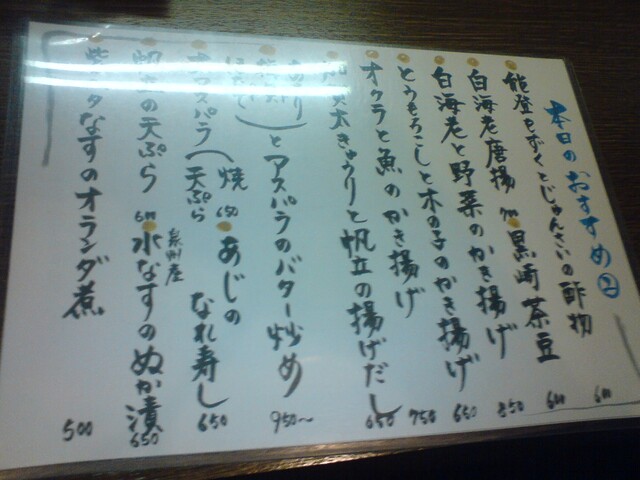 本日のおすすめ②
能登もずくとじゅんさいの酢物 600
白海老唐揚 700 黒崎茶豆 600
白海老と野菜のかき揚げ 850
とうもろこしと木の子のかき揚げ 650
オクラと魚のかき揚げ 750
加賀太きゅうりと帆立の揚げだし 650
とアスパラのバター炒め 950〜
アスパラ(焼 天ぷら 650 あじのなれ寿し 650
帆立の天ぷら 600 泉州産 水なすのぬか漬 650
なすのオランダ煮 500